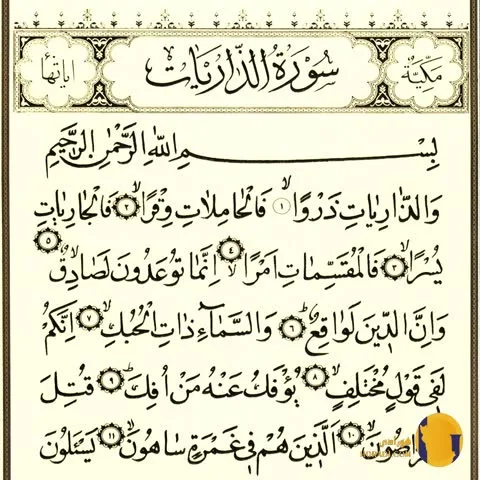 مكية سورة الذاريات اياتها
بِسْمِ اللّٰهِ الرَّحْمٰنِ الرَّحِيمِ
وَالذَّارِيَاتِ ذَرْوًا ۙ ١ فَالْحَامِلَاتِ وِقْرًا ۙ ٢ فَالْجَارِيَاتِ
يُسْرًا ۙ ٣ فَالْمُقَسِّمَاتِ اَمْرًا ۙ ٤ اِنَّمَا تُوعَدُونَ لَصَادِقٌ ۙ ٥
وَاِنَّ الدِّينَ لَوَاقِعٌ ۜ ٦ وَالسَّمَاءِ ذَاتِ الْحُبُكِ ۙ ٧ اِنَّكُمْ
لَفِي قَوْلٍ مُخْتَلِفٍ ۙ ٨ يُؤْفَكُ عَنْهُ مَنْ اُفِكَ ۜ ٩ قُتِلَ
١٠ الَّذِينَ هُمْ فِي غَمْرَةٍ سَاهُونَ ۙ ١١ يَسْـَٔلُونَ